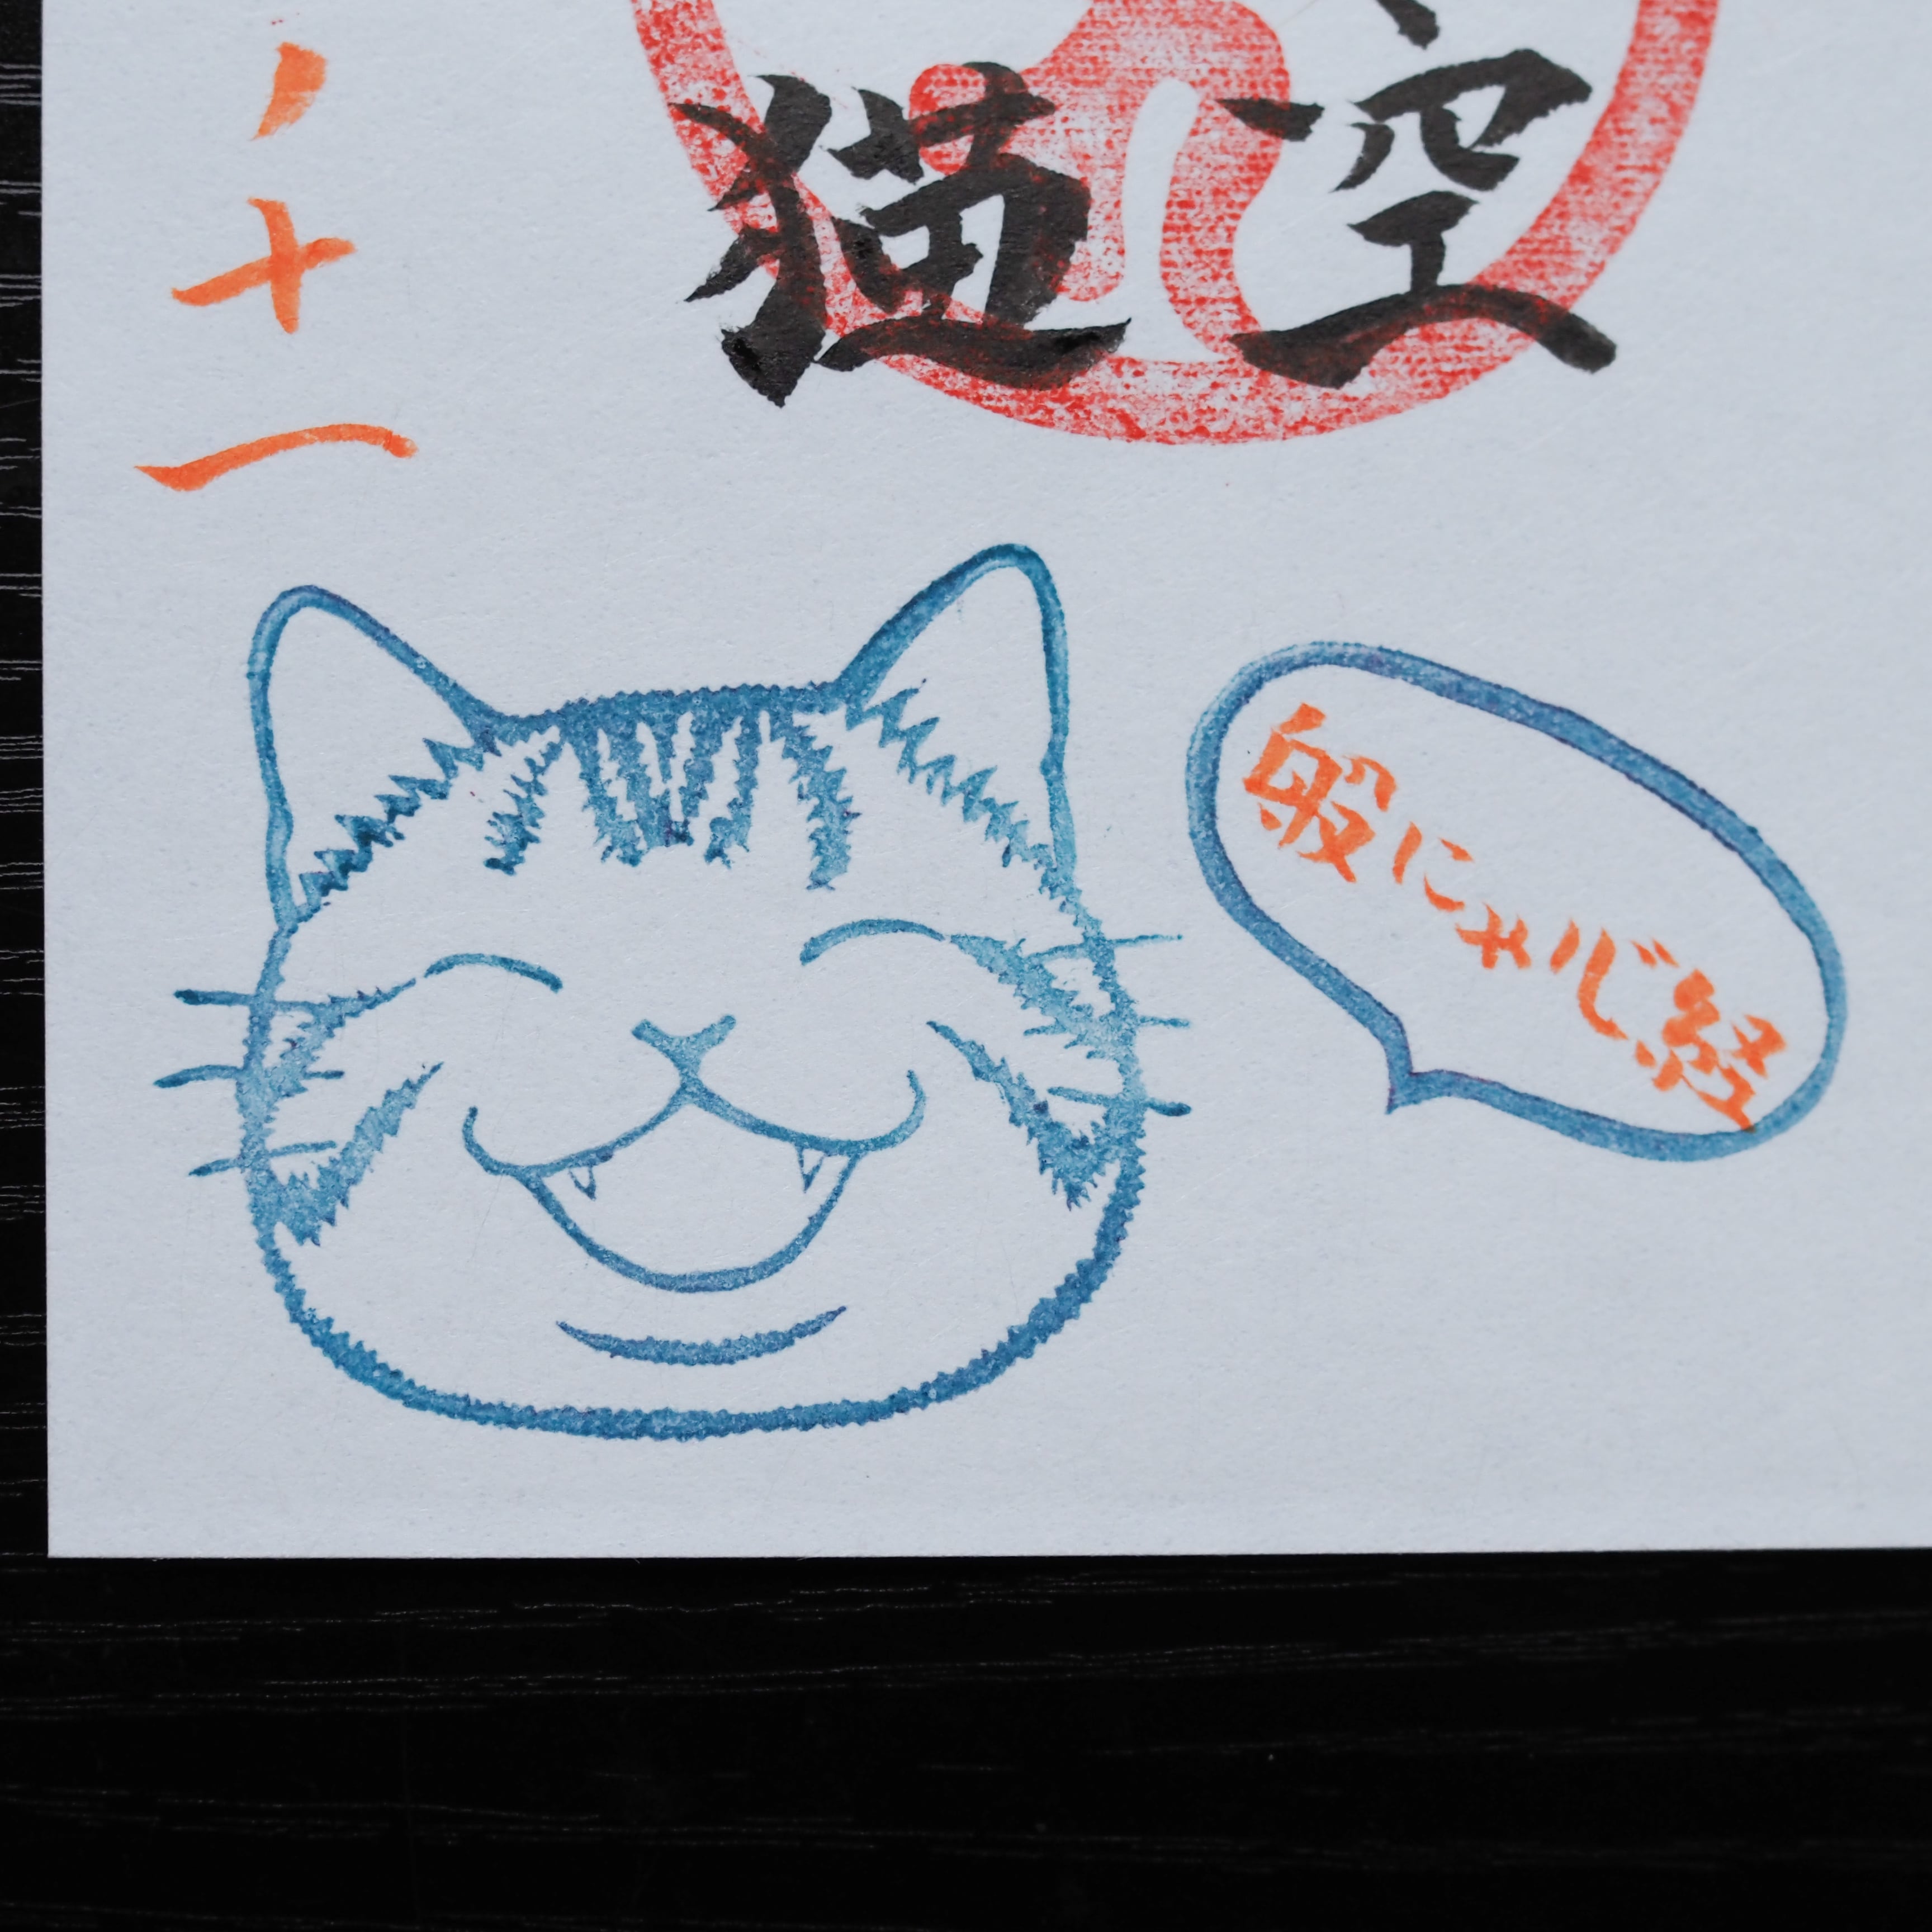 空
猫
十一
般にゃ心経